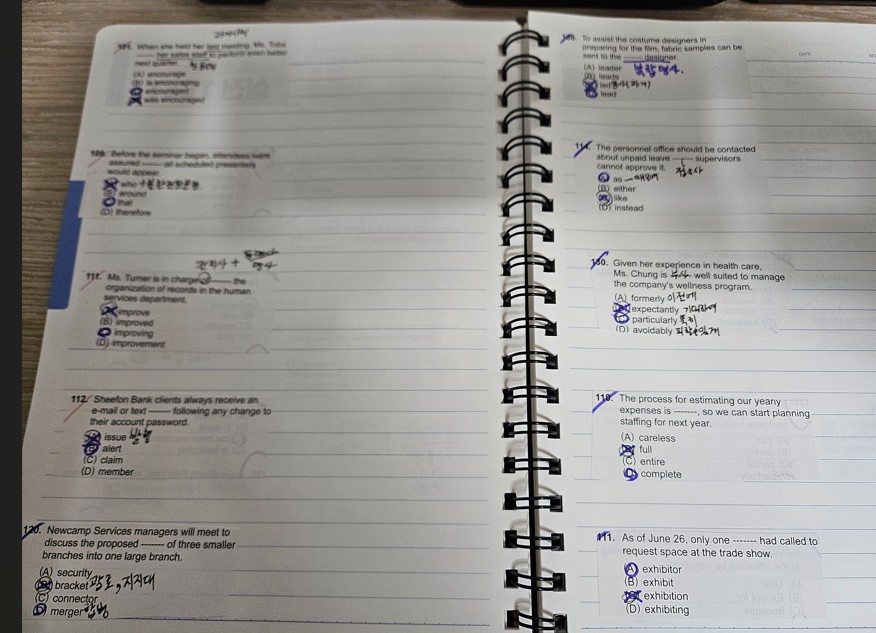 101. When she held her last meeting, Ms. Tribe
------- her sales staff to perform even better
next quarter.
(A) encourage
(B) is encouraging
(C) encouraged
(D) was encouraged
109. Before the seminar began, attendees were
assured ------- all scheduled presenters
would appear.
(A) who
(B) around
(C) that
(D) therefore
관사 +
명사
111. Ms. Turner is in charge of ------- the
organization of records in the human
services department.
(A) improve
(B) improved
(C) improving
(D) improvement
112. Sheefon Bank clients always receive an
e-mail or text ------- following any change to
their account password.
(A) issue 발행
(B) alert
(C) claim
(D) member
120. Newcamp Services managers will meet to
discuss the proposed ------- of three smaller
branches into one large branch.
(A) security
(B) bracket 괄호, 지지대
(C) connector
(D) merger 합병
To assist the costume designers in
preparing for the film, fabric samples can be
sent to the ------- designer.
(A) leader 복합명사.
(B) leads
(C) led
(D) lead
114. The personnel office should be contacted
about unpaid leave ------- supervisors
cannot approve it. 접속사
(A) as ~때문에
(B) either
(C) like
(D) instead
130. Given her experience in health care,
Ms. Chung is 부사 well suited to manage
the company's wellness program.
(A) formerly 이전에
(B) expectantly 기대하여
(C) particularly 특히
(D) avoidably 피할수있게
118. The process for estimating our yearly
expenses is -------, so we can start planning
staffing for next year.
(A) careless
(B) full
(C) entire
(D) complete
111. As of June 26, only one ------- had called to
request space at the trade show.
(A) exhibitor
(B) exhibit
(C) exhibition
(D) exhibiting